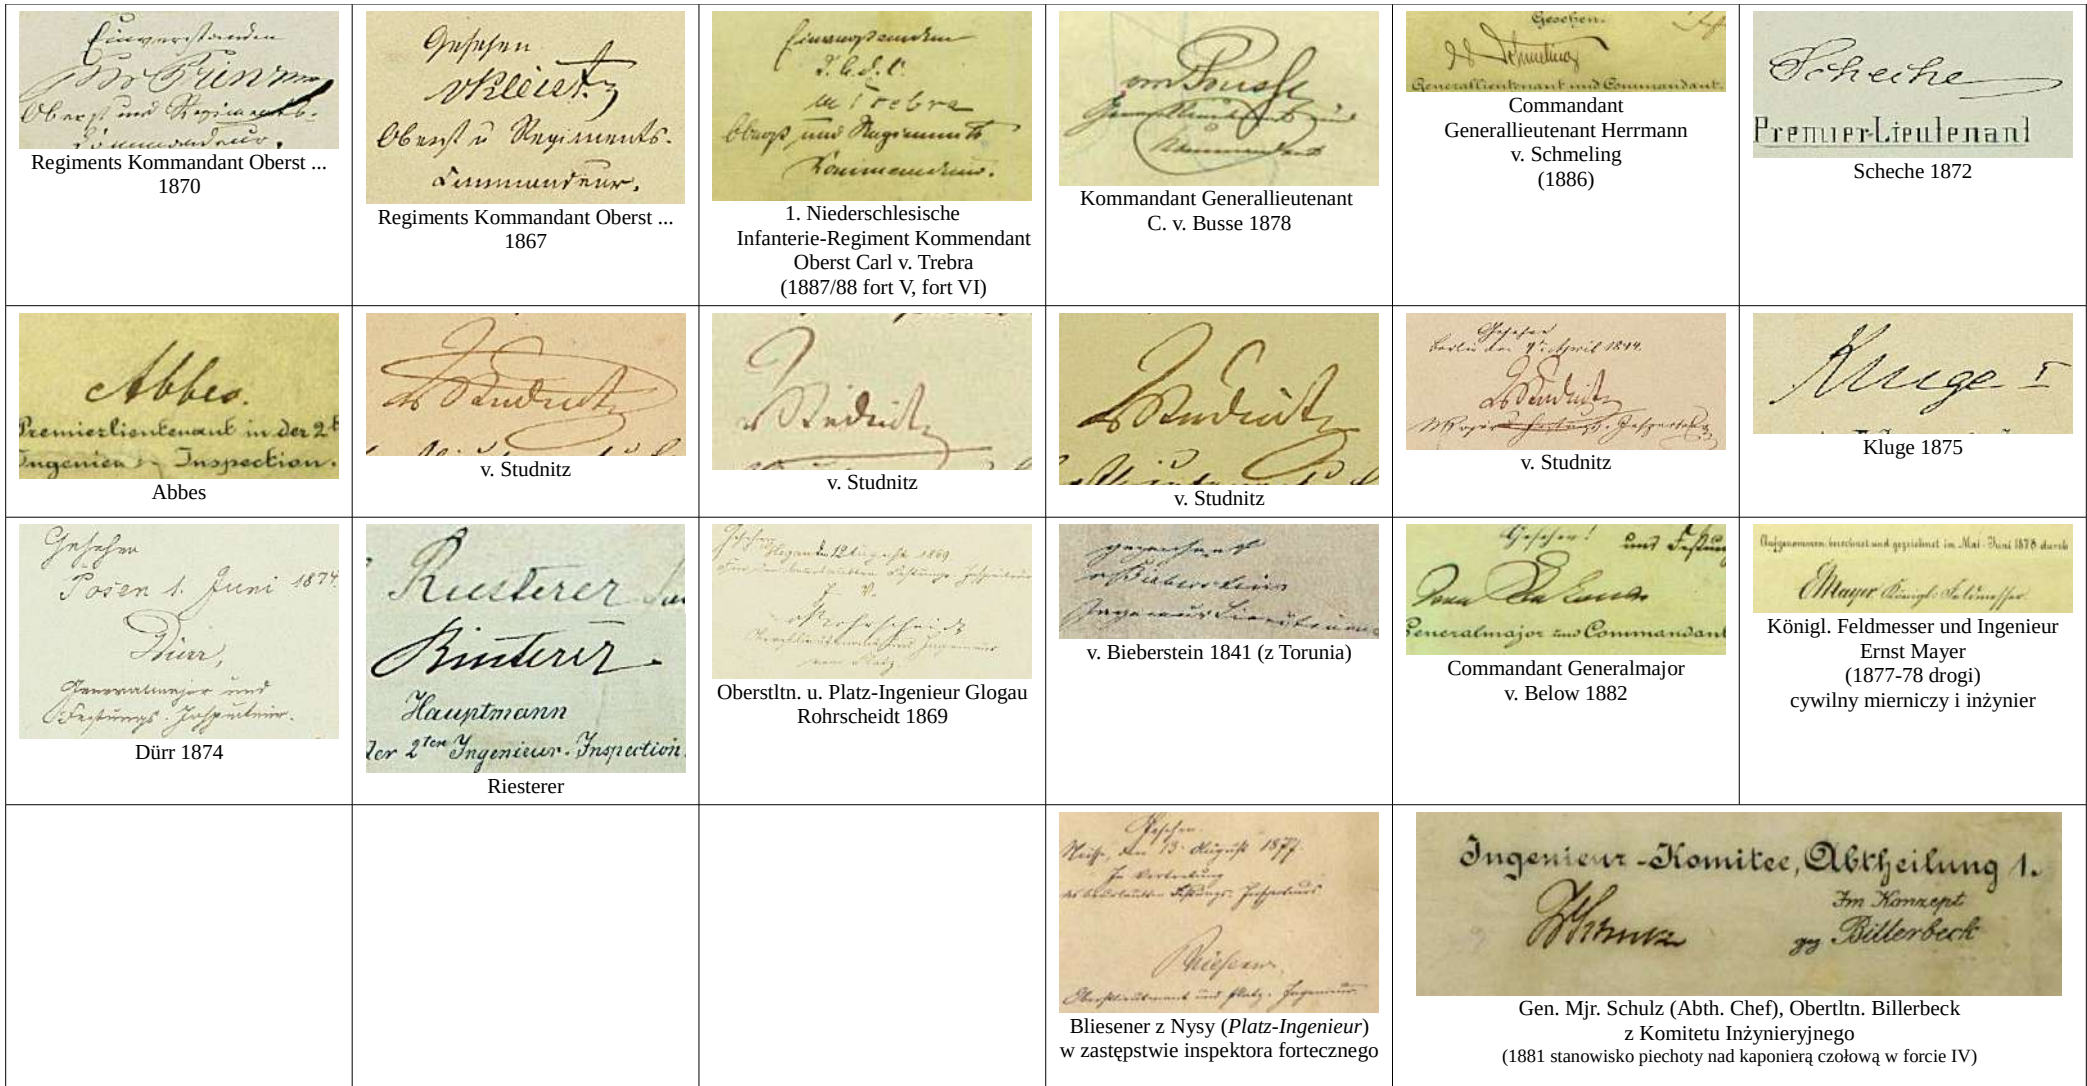 Einverstanden
Oberst und Regiments-
Kommandeur.
Regiments Kommandant Oberst ...
1870
Gesehen
vKleist
Oberst u Regiments-
Commandeur.
Regiments Kommandant Oberst ...
1867
Einverstanden
v Trebra
Oberst und Regiments
Kommandeur.
1. Niederschlesische
Infanterie-Regiment Kommendant
Oberst Carl v. Trebra
(1887/88 fort V, fort VI)
von Busse
Generallieutenant und
Kommandant
Kommandant Generallieutenant
C. v. Busse 1878
Gesehen.
v Schmeling
Generallieutenant und Commandant.
Commandant
Generallieutenant Herrmann
v. Schmeling
(1886)
Scheche
Premier-Lieutenant
Scheche 1872
Abbes.
Premierlieutenant in der 2t
Ingenieur-Inspection.
Abbes
v Studnitz
v. Studnitz
v Studnitz
v. Studnitz
v Studnitz
v. Studnitz
Gesehen
Berlin den 4t April 1844.
v Studnitz
v. Studnitz
Kluge I
Kluge 1875
Gesehen
Posen 1. Juni 1874
Dürr,
Generalmajor und
Festungs-Inspecteur.
Dürr 1874
Riesterer
Riesterer
Hauptmann
der 2ten Ingenieur-Inspection.
Riesterer
Gesehen
Glogau den 12 August 1869.
I. V.
v Rohrscheidt
Oberstlieutenant und Ingenieur
vom Platz
Oberstltn. u. Platz-Ingenieur Glogau
Rohrscheidt 1869
gezeichnet
v Bieberstein
Ingenieur Lieutenant
v. Bieberstein 1841 (z Torunia)
Gesehen! und Festung
von Below
Generalmajor und Commandant
Commandant Generalmajor
v. Below 1882
Aufgenommen, berechnet und gezeichnet im Mai-Juni 1878 durch
EMayer Königl. Feldmesser.
Königl. Feldmesser und Ingenieur
Ernst Mayer
(1877-78 drogi)
cywilny mierniczy i inżynier
Gesehen.
Neisse, den 13. August 1877.
In Vertretung
des beurlaubten Festungs-Inspecteurs
Bliesener
Oberstlieutenant und Platz-Ingenieur.
Bliesener z Nysy (Platz-Ingenieur)
w zastępstwie inspektora fortecznego
Ingenieur-Komitee, Abtheilung 1.
Schulz
Im Konzept
gez Billerbeck
Gen. Mjr. Schulz (Abth. Chef), Obertltn. Billerbeck
z Komitetu Inżynieryjnego
(1881 stanowisko piechoty nad kaponierą czołową w forcie IV)